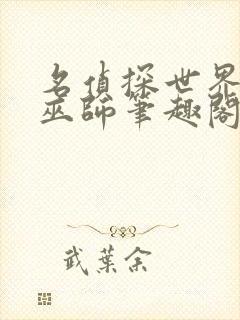 名偵探世界
巫師筆趣閣
武葉余